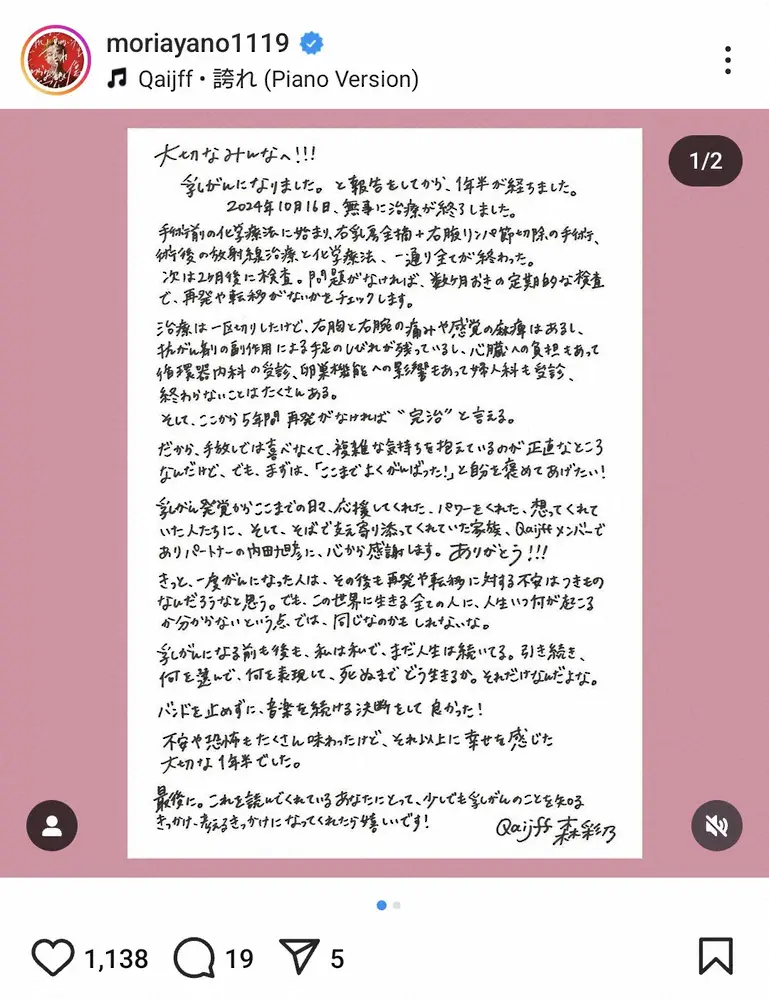 moriayano1119
Qaijff • 誇れ (Piano Version)
1/2
大切なみんなへ!!!
乳がんになりました。と報告をしてから、1年半が経ちました。
2024年10月16日、無事に治療が終了しました。
手術前の化学療法に始まり、右乳房全摘+右腋リンパ節切除の手術、
術後の放射線治療と化学療法、一通り全てが終わった。
次は2ヶ月後に検査。問題がなければ、数ヶ月おきの定期的な検査
で、再発や転移がないかをチェックします。
治療は一区切りしたけど、右胸と右腕の痛みや感覚の麻痺はあるし、
抗がん剤の副作用による手足のしびれが残っているし、心臓への負担もあって
循環器内科の受診、卵巣機能への影響もあって婦人科も受診、
終わらないことはたくさんある。
そして、ここから5年間再発がなければ"完治"と言える。
だから、手放しでは喜べなくて、複雑な気持ちを抱えているのが正直なところ
なんだけど、でも、まずは、「ここまでよくがんばった!」と自分を褒めてあげたい!
乳がん発覚からここまでの日々、応援してくれた、パワーをくれた、想ってくれて
いた人たちに、そして、そばで支え寄り添ってくれていた家族、Qaijffメンバーで
ありパートナーの内田旭彦に、心から感謝します。ありがとう!!!
きっと、一度がんになった人は、その後も再発や転移に対する不安はつきもの
なんだろうなと思う。でも、この世界に生きる全ての人に、人生いつ何が起こる
か分からないという点では、同じなのかもしれないな。
乳がんになる前も後も、私は私で、まだ人生は続いてる。引き続き、
何を選んで、何を表現して、死ぬまでどう生きるか。それだけなんだよな。
バンドを止めずに、音楽を続ける決断をして良かった!
不安や恐怖もたくさん味わったけど、それ以上に幸せを感じた
大切な1年半でした。
最後に。これを読んでくれているあなたにとって、少しでも乳がんのことを知る
きっかけ、考えるきっかけになってくれたら嬉しいです!
Qaijff 森彩乃
1,138
19
5